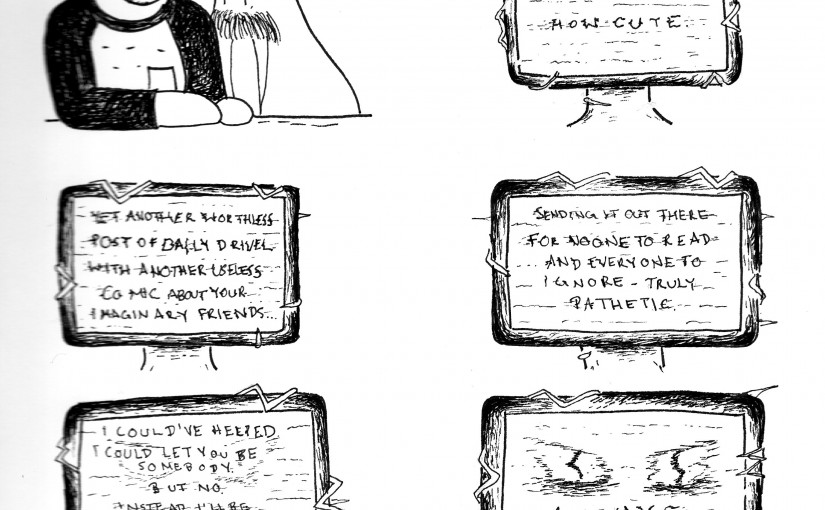 HOW CUTE.
YET ANOTHER WORTHLESS
POST OF DAILY DRIVEL
WITH ANOTHER USELESS
COMIC ABOUT YOUR
IMAGINARY FRIENDS...
SENDING IT OUT THERE
FOR NOONE TO READ
AND EVERYONE TO
IGNORE - TRULY
PATHETIC.
I COULD'VE HELPED.
I COULD LET YOU BE
SOMEBODY.
BUT NO.
INSTEAD I'LL BE